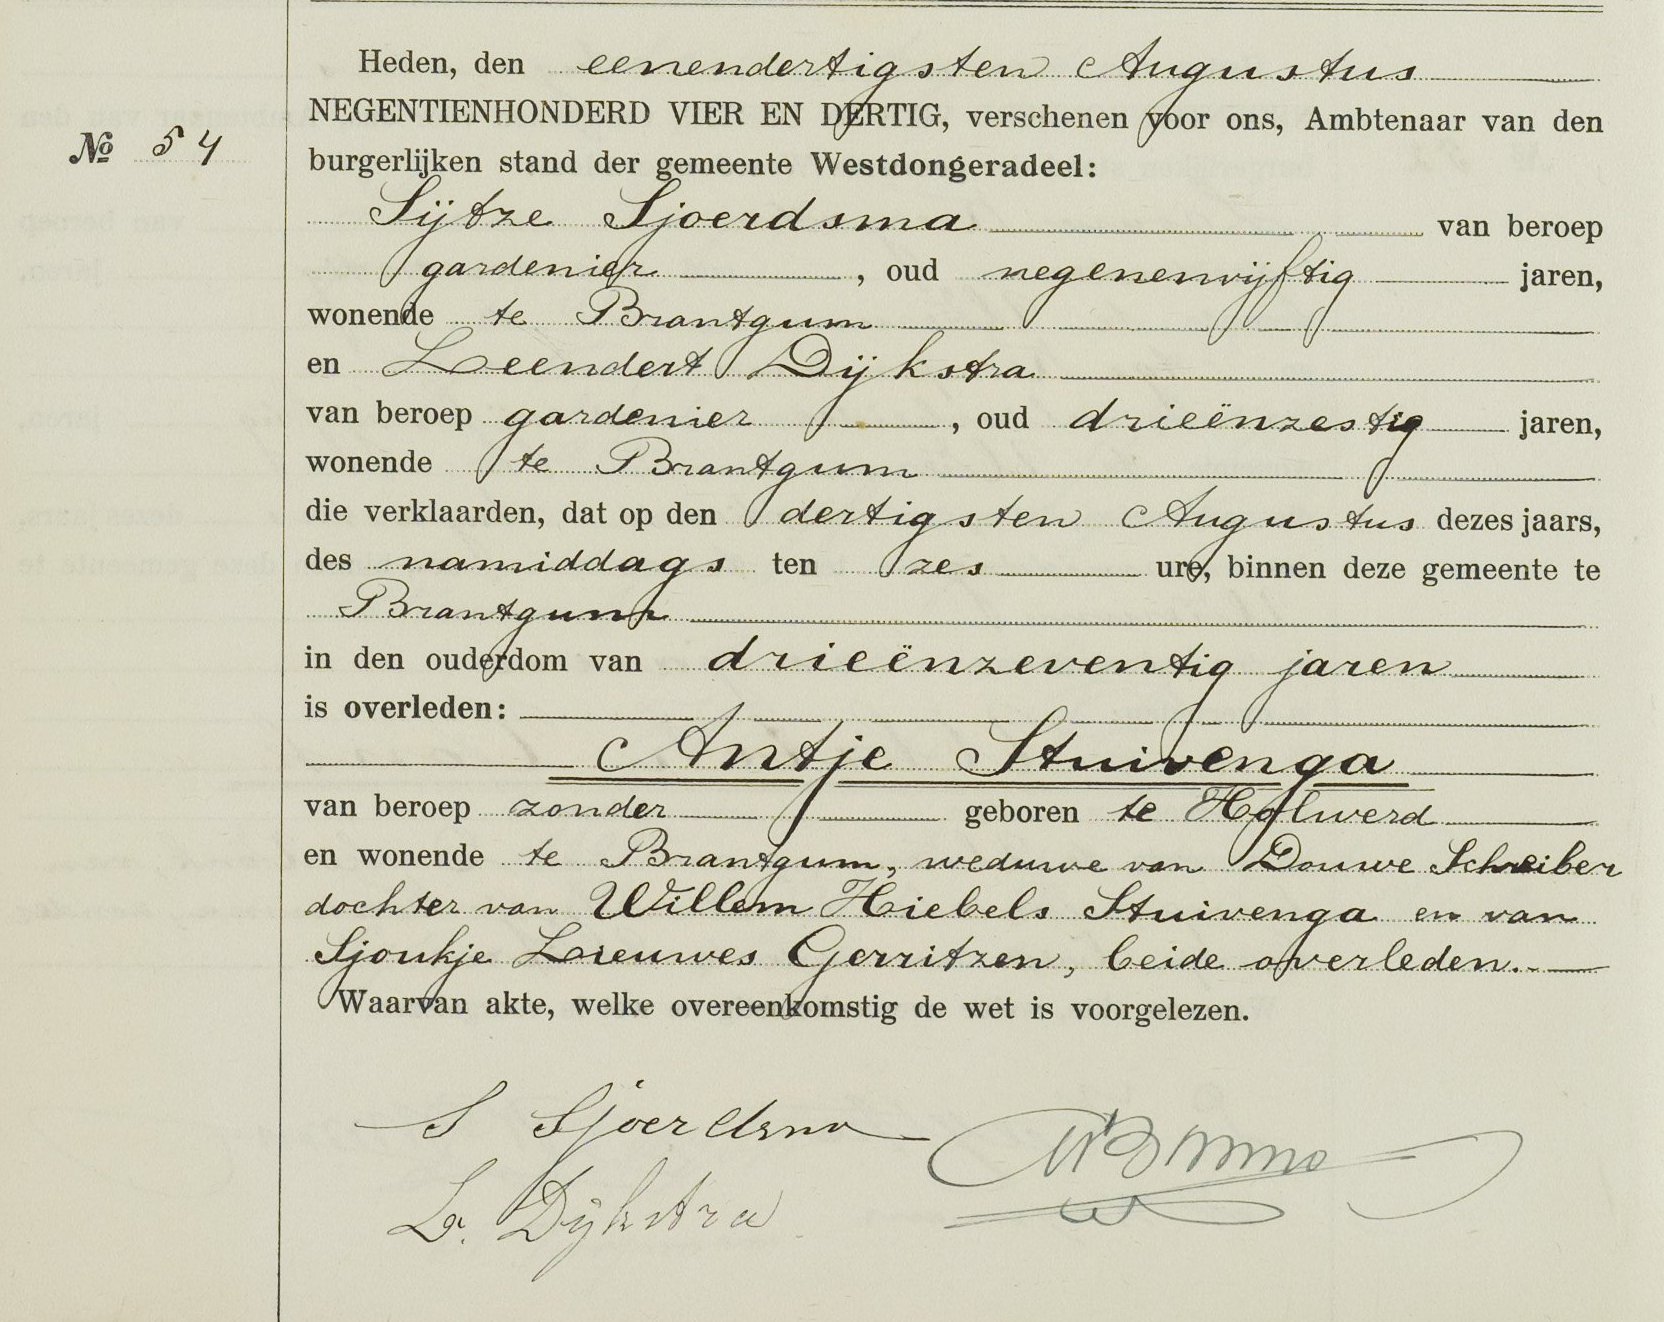 Heden, den eenendertigsten Augustus
NEGENTIENHONDERD VIER EN DERTIG, verschenen voor ons, Ambtenaar van den
№ 54
burgerlijken stand der gemeente Westdongeradeel:
Sijtze Sjoerdsma van beroep
gardenier, oud negenenvijftig jaren,
wonende te Brantgum
en Leendert Dijkstra
van beroep gardenier, oud drieënzestig jaren,
wonende te Brantgum
die verklaarden, dat op den dertigsten Augustus dezes jaars,
des namiddags ten zes ure, binnen deze gemeente te
Brantgum
in den ouderdom van drieënzeventig jaren
is overleden:
Antje Stuivenga
van beroep zonder geboren te Holwerd
en wonende te Brantgum, weduwe van Douwe Schreiber
dochter van Willem Hiebels Stuivenga en van
Sjoukje Lieuwes Gerritzen, beide overleden.
Waarvan akte, welke overeenkomstig de wet is voorgelezen.
S Sjoerdsma
L. Dijkstra